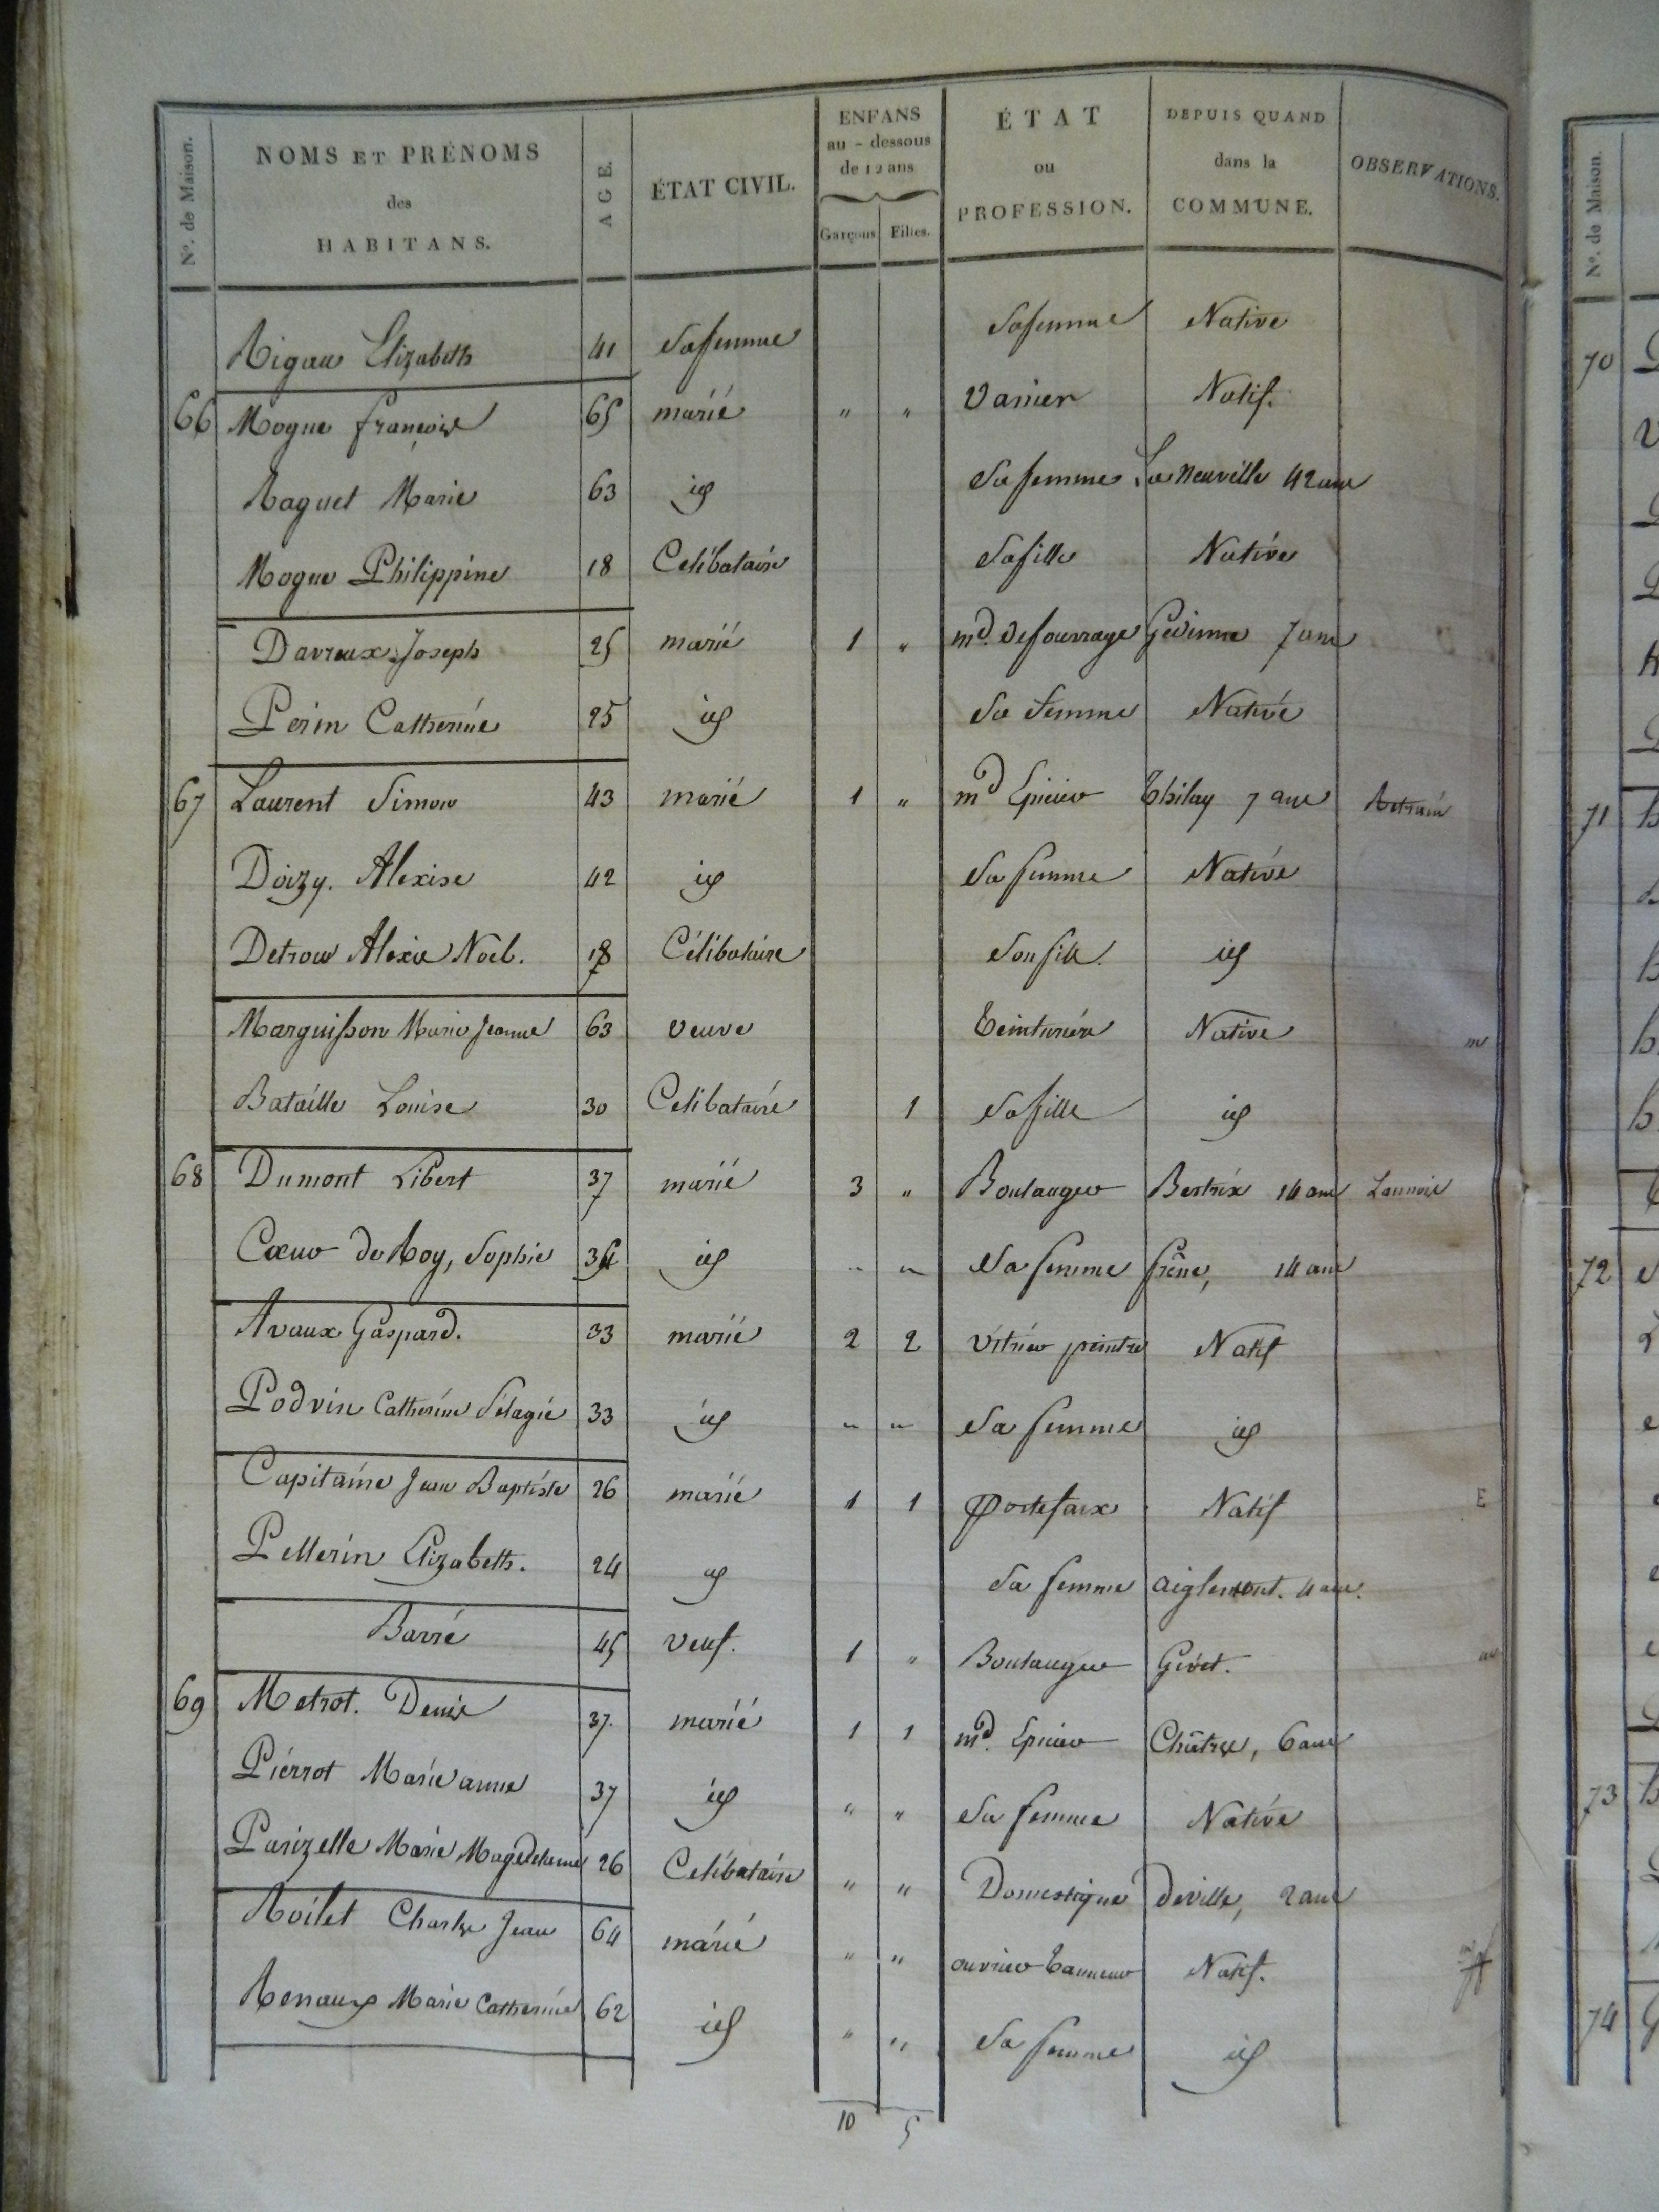 N°. de Maison. NOMS ET PRÉNOMS des HABITANS. AGE. ÉTAT CIVIL. ENFANS au-dessous de 12 ans Garçons Filles. ÉTAT ou PROFESSION. DEPUIS QUAND dans la COMMUNE. OBSERVATIONS. N°. de Maison.
Rigau Elizabeth 41 Sa femme Sa femme Native
66 Mogue françois 65 marié " " Vanier Natif.
Raguet Marie 63 id Sa femme La Neuville 42 ans
Mogue Philippine 18 Celibataire Sa fille Native
Davreux Joseph 25 marié 1 " md. de fourrage Gedinne 7 ans
Perin Catherine 25 id Sa femme Native
67 Laurent Simon 43 marié 1 " md Epicier Thilay 7 ans
Doizy. Alexise 42 id Sa femme Native
Detrou Alexis Noël. 18 Célibataire Son fils. id
Marguisson Marie Jeanne 63 veuve Teinturière Native
Bataille Louise 30 Celibataire 1 Sa fille id
68 Dumont Libert 37 marié 3 " Boulanger Bertrix 14 ans Lannois
Cœur de Roy, Sophie 34 id " " Sa femme frêne, 14 ans
Avaux Gaspard. 33 marié 2 2 Vitrier peintre Natif
Podvin Catherine Pélagie 33 id " " Sa femme id
Capitaine Jean Baptiste 26 marié 1 1 portefaix Natif E
Pellerin Elizabeth. 24 id Sa femme aiglemont. 4 ans.
Barré 45 veuf. 1 " Boulanger Givet.
69 Metrot. Denis 37. marié 1 1 md. Epicier Châtres, 6 ans
Pierrot Marie anne 37 id " " Sa femme Native
Parizelle Marie Magdelaine 26 Celibataire " " Domestique deville, 2 ans
Roilet Charles Jean 64 marié " " ouvrier tanneur Natif.
Renaux Marie Catherine 62 id " " Sa femme id
10 5
70
71
72
73
74